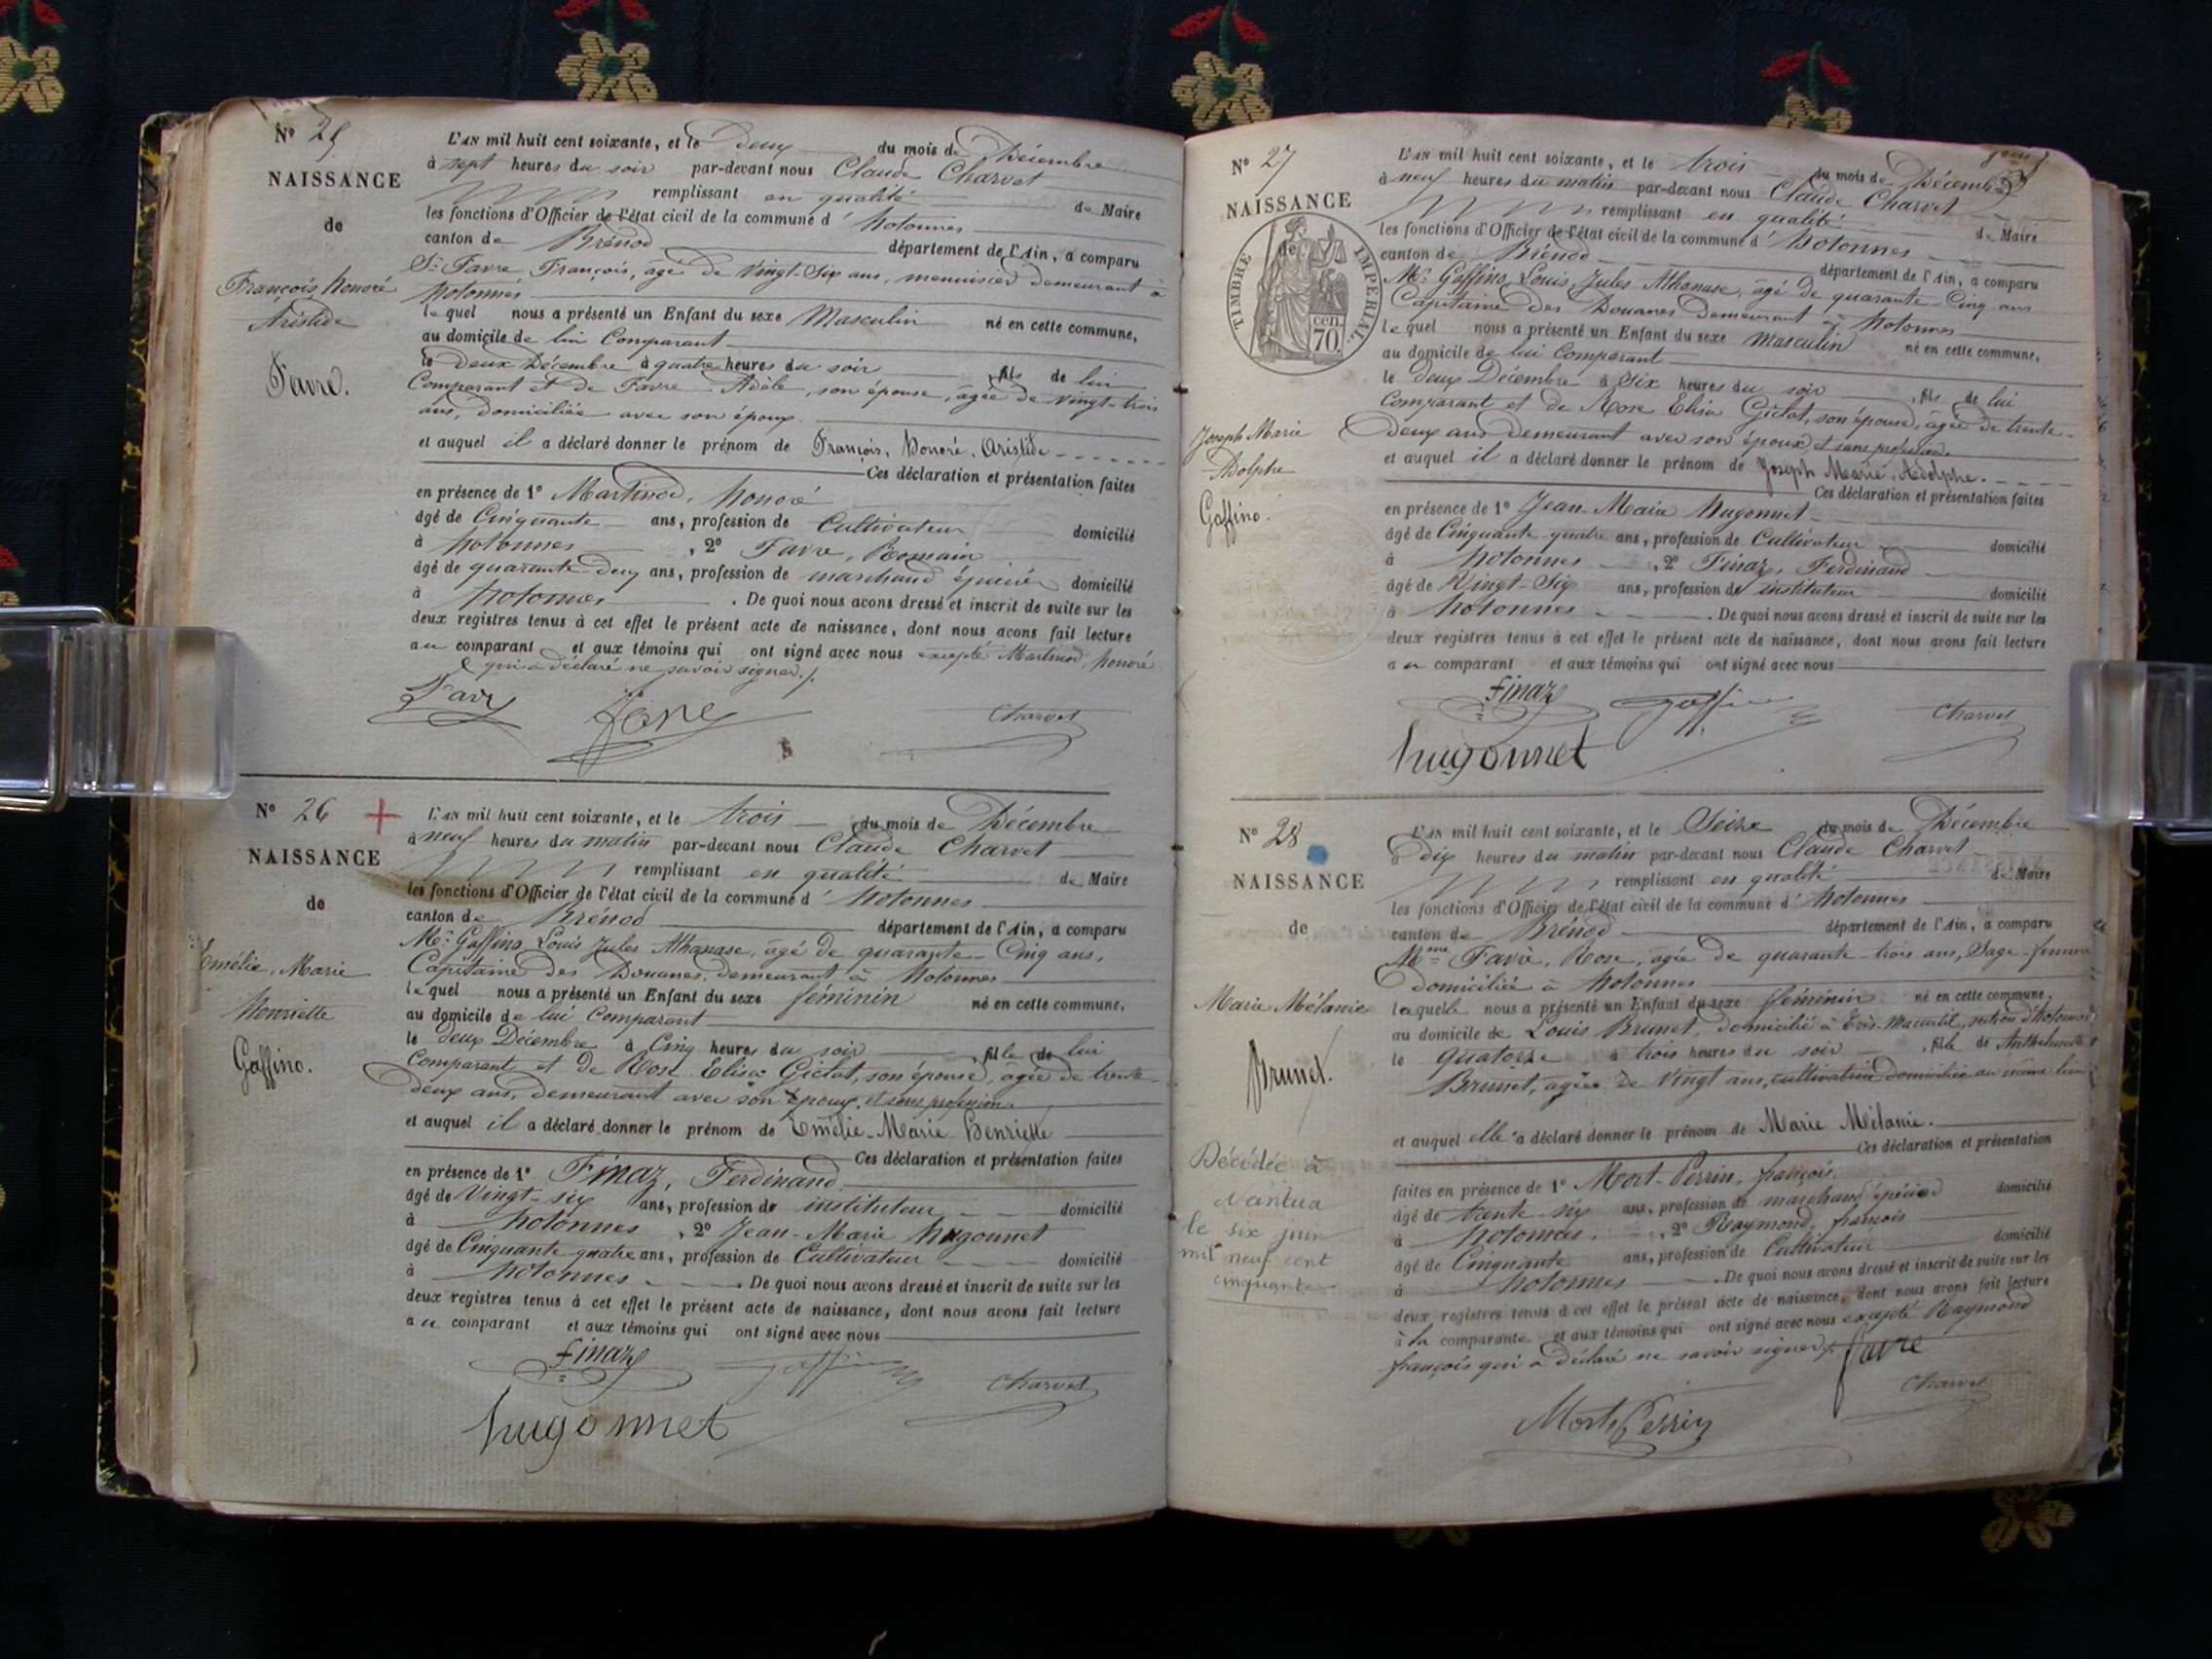 N° 25
NAISSANCE
de
François, honoré
Aristide
Favre.
L'AN mil huit cent soixante, et le Deux du mois de Décembre
à sept heures du soir par-devant nous Claude Charvet
remplissant en qualité de Maire
les fonctions d'Officier de l'état civil de la commune d' hotonnes
canton de Brénod département de l'Ain, a comparu
Sr. Favre François, âgé de Vingt-Six ans, menuisier demeurant à
hotonnes
lequel nous a présenté un Enfant du sexe Masculin né en cette commune,
au domicile de lui Comparant
le deux Décembre à quatre heures du soir, fils de lui
Comparant et de Favre Adèle, son épouse, âgée de vingt-trois
ans, domiciliée avec son époux.
et auquel il a déclaré donner le prénom de François, Honoré, Aristide
Ces déclaration et présentation faites
en présence de 1° Martinod, honoré
âgé de Cinquante ans, profession de Cultivateur domicilié
à hotonnes, 2° Favre, Romain
âgé de quarante-deux ans, profession de marchand épicier domicilié
à hotonnes. De quoi nous avons dressé et inscrit de suite sur les
deux registres tenus à cet effet le présent acte de naissance, dont nous avons fait lecture
au comparant et aux témoins qui ont signé avec nous excepté Martinod, honoré
qui a déclaré ne savoir signer./.
Favre Favre Charvet
N° 26 +
NAISSANCE
de
Emélie, Marie
Henriette
Gaffino.
L'AN mil huit cent soixante, et le trois du mois de Décembre
à neuf heures du matin par-devant nous Claude Charvet
remplissant en qualité de Maire
les fonctions d'Officier de l'état civil de la commune d' hotonnes
canton de Brénod département de l'Ain, a comparu
Mr. Gaffino Louis Jules Athanase, âgé de quarante-Cinq ans,
Capitaine des Douanes, demeurant à hotonnes
lequel nous a présenté un Enfant du sexe féminin né en cette commune,
au domicile de lui Comparant
le deux Décembre à Cinq heures du soir, fille de lui
Comparant et de Rose Elisa Giclat, son épouse, âgée de trente-
deux ans, demeurant avec son époux, et sans profession.
et auquel il a déclaré donner le prénom de Emélie-Marie-Henriette
Ces déclaration et présentation faites
en présence de 1° Finaz, Ferdinand
âgé de Vingt-six ans, profession de instituteur domicilié
à hotonnes, 2° Jean-Marie hugonnet
âgé de Cinquante quatre ans, profession de Cultivateur domicilié
à hotonnes. De quoi nous avons dressé et inscrit de suite sur les
deux registres tenus à cet effet le présent acte de naissance, dont nous avons fait lecture
au comparant et aux témoins qui ont signé avec nous
finaz Gaffino Charvet
hugonnet
N° 27
NAISSANCE
de
TIMBRE IMPERIAL
70 cen.
Joseph Marie
Adolphe
Gaffino.
L'AN mil huit cent soixante, et le trois du mois de Décembre
à neuf heures du matin par-devant nous Claude Charvet
remplissant en qualité de Maire
les fonctions d'Officier de l'état civil de la commune d' hotonnes
canton de Brénod département de l'Ain, a comparu
Mr. Gaffino, Louis, Jules Athanase, âgé de quarante-Cinq ans
Capitaine des Douanes demeurant à hotonnes
lequel nous a présenté un Enfant du sexe masculin né en cette commune,
au domicile de lui Comparant
le deux Décembre à Six heures du soir, fils de lui
Comparant et de Rose Elisa Giclat, son épouse, âgée de trente-
Deux ans demeurant avec son époux et sans profession.
et auquel il a déclaré donner le prénom de Joseph Marie, Adolphe.
Ces déclaration et présentation faites
en présence de 1° Jean-Marie hugonnet
âgé de Cinquante quatre ans, profession de Cultivateur domicilié
à hotonnes, 2° Finaz, Ferdinand
âgé de Vingt-Six ans, profession de instituteur domicilié
à hotonnes. De quoi nous avons dressé et inscrit de suite sur les
deux registres tenus à cet effet le présent acte de naissance, dont nous avons fait lecture
au comparant et aux témoins qui ont signé avec nous
finaz Gaffino Charvet
hugonnet
N° 28
NAISSANCE
de
Marie Mélanie
Brunet.
Décédée à
Nantua
le six juin
mil neuf cent
cinquante
L'AN mil huit cent soixante, et le Seize du mois de Décembre
à dix heures du matin par-devant nous Claude Charvet
remplissant en qualité de Maire
les fonctions d'Officier de l'état civil de la commune d' hotonnes
canton de Brénod département de l'Ain, a comparu
Mme Favre, Rose, âgée de quarante-trois ans, Sage-femme
Domiciliée à hotonnes
laquelle nous a présenté un Enfant du sexe féminin né en cette commune,
au domicile de Louis Brunet, domicilié à section d'hotonnes
le quatorze à trois heures du soir, fille de Anthelmette
Brunet, âgée de Vingt ans, cultivatrice domiciliée au même lieu
et auquel elle a déclaré donner le prénom de Marie Mélanie.
Ces déclaration et présentation
faites en présence de 1° Mort-Perrin, françois.
âgé de trente six ans, profession de marchand épicier domicilié
à hotonnes, 2° Raymond, françois
âgé de Cinquante ans, profession de Cultivateur domicilié
à hotonnes. De quoi nous avons dressé et inscrit de suite sur les
deux registres tenus à cet effet le présent acte de naissance, dont nous avons fait lecture
à la comparante et aux témoins qui ont signé avec nous excepté Raymond
françois qui a déclaré ne savoir signer./. favre
Charvet
Mort Perrin